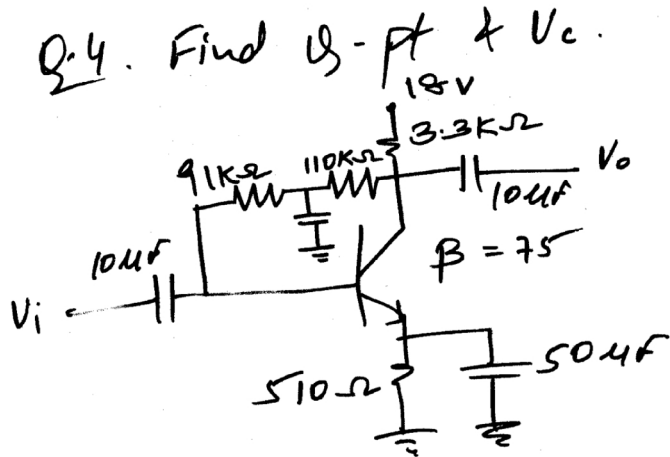 Q.4. Find Q-pt & Vc.
18V
3.3KΩ
91KΩ
110KΩ
Vo
10μF
10μF
β = 75
Vi
510Ω
50μF